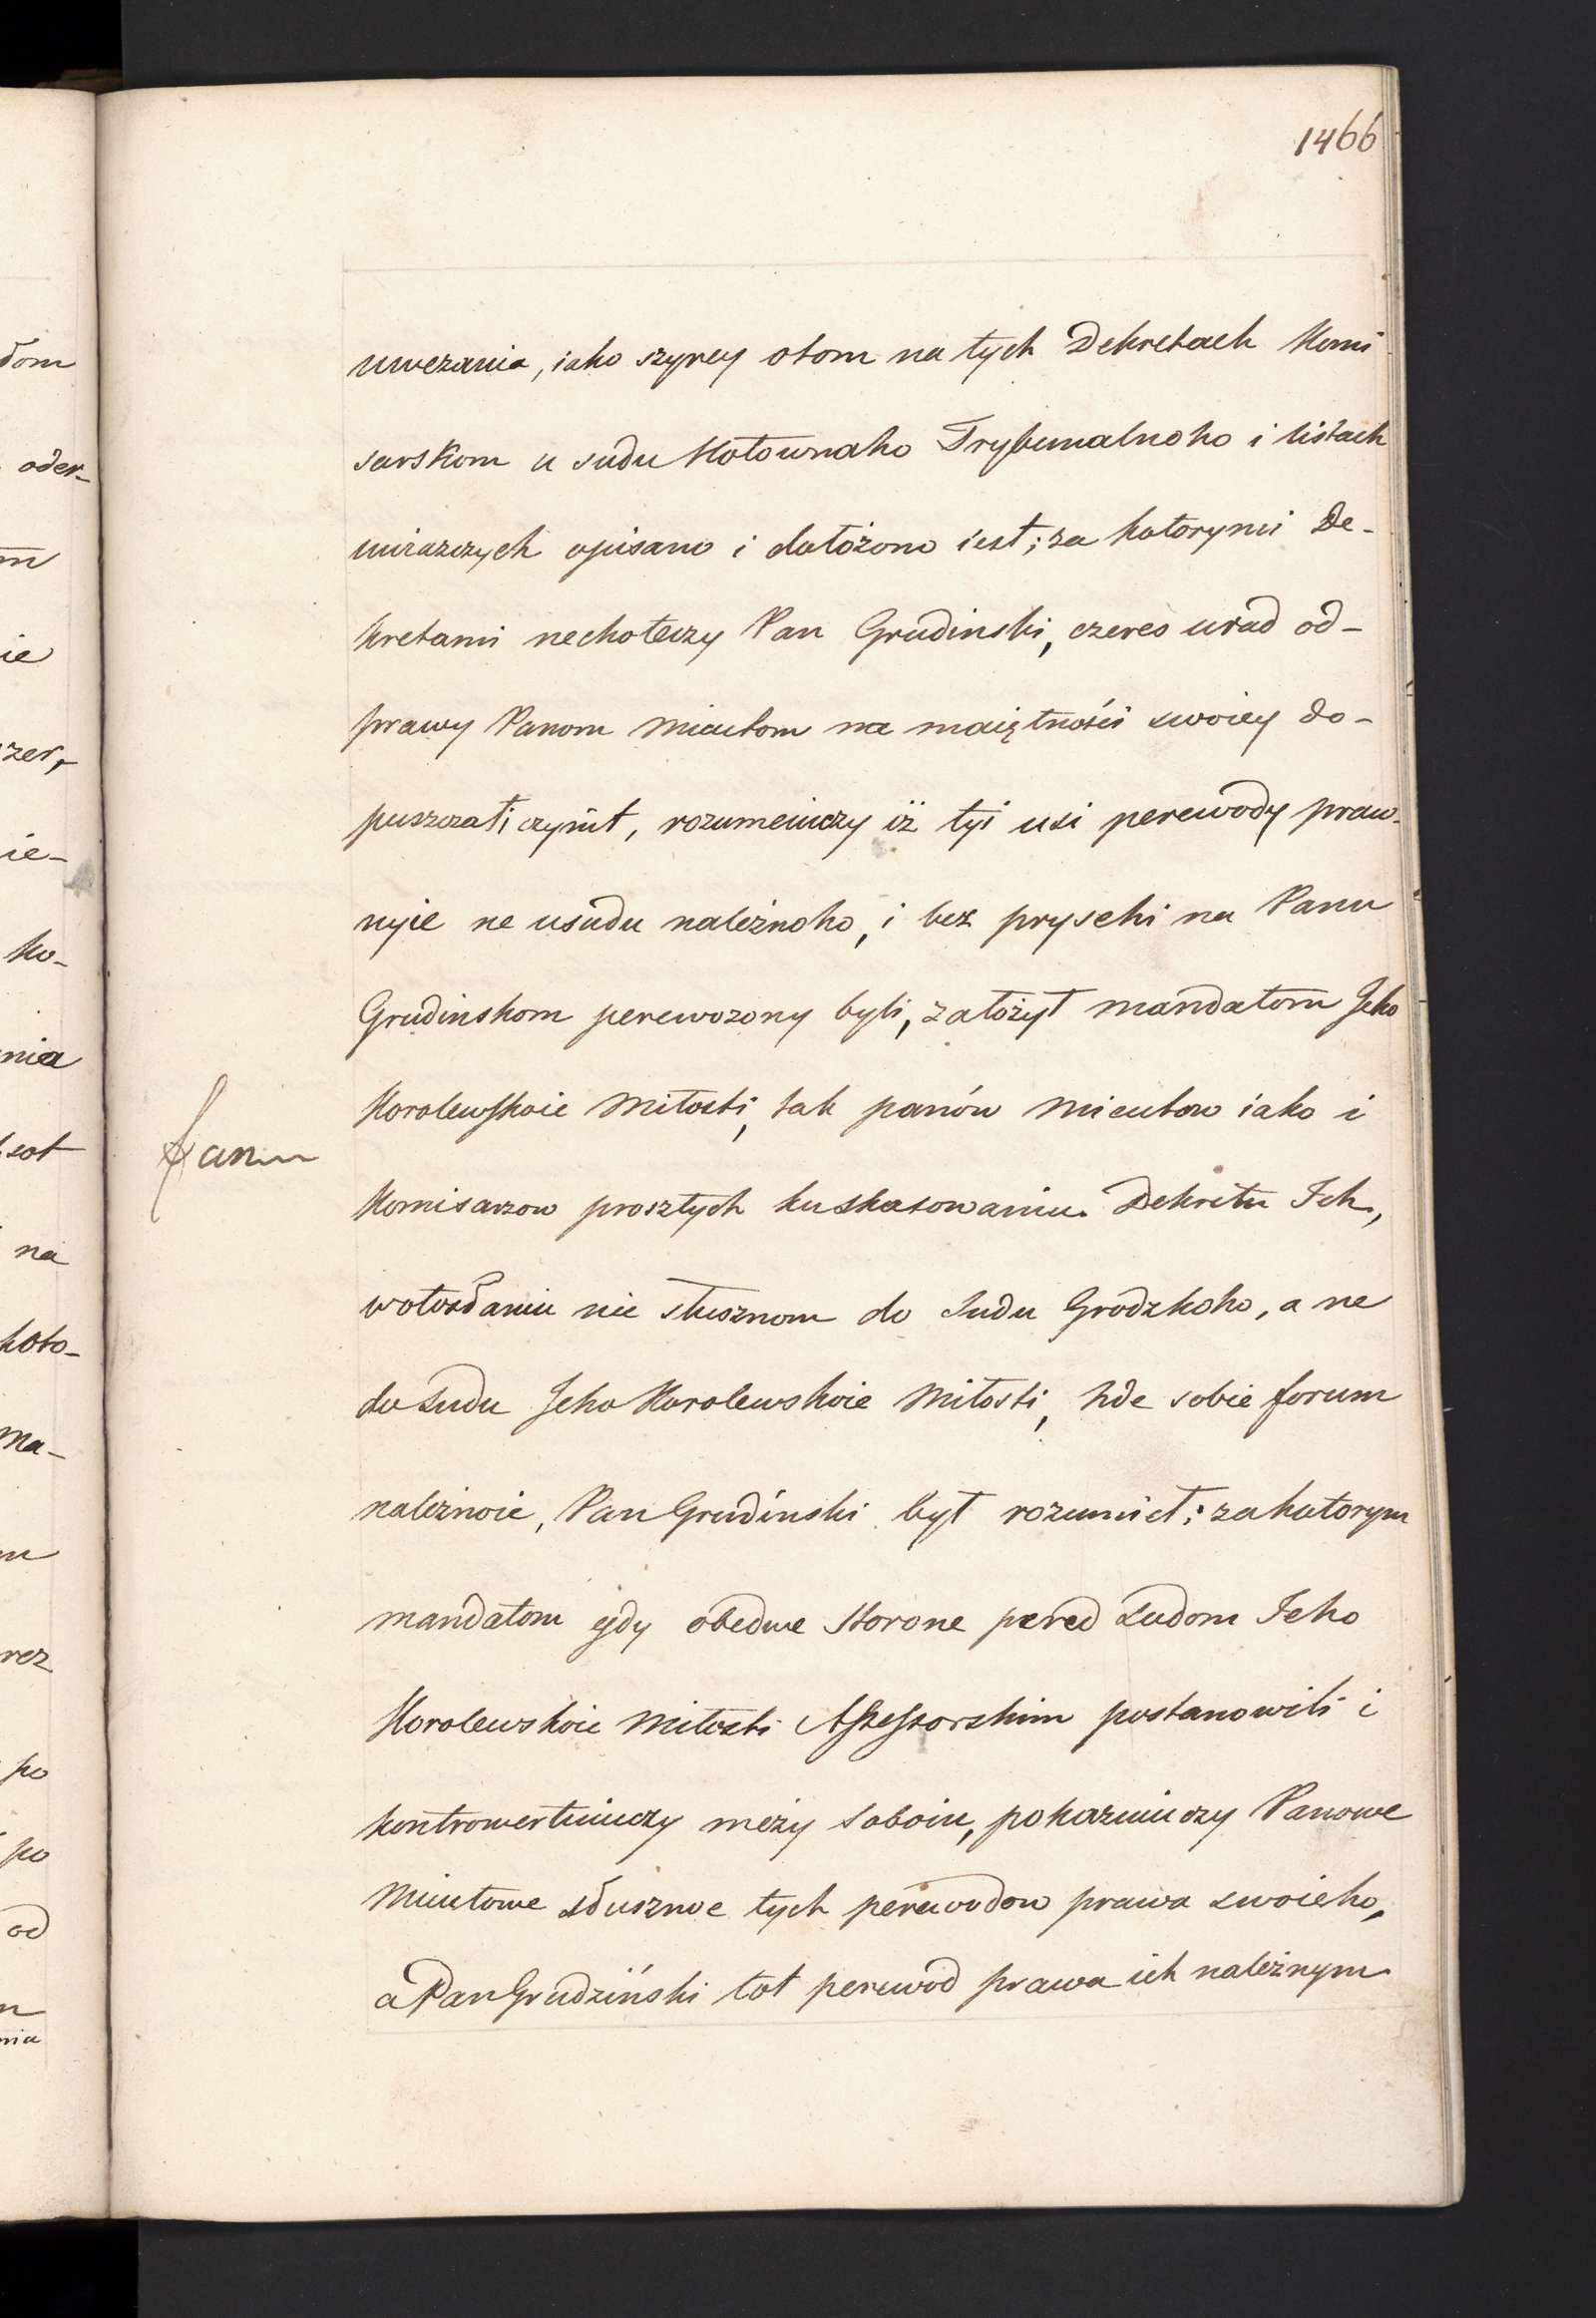 1466
uwezania, iako szyrey otom na tych Dekretach Komi
sarskom u sudu Hołownaho Trybunalnoho i listach
uwiazczych opisano i dołożono iest; za kotorymi De-
kretami nechoteczy Pan Grudinski, czerez urad od-
prawy Panom Miculom na maiętnośći swoiey do-
puszczati czynit, rozumeiuczy iż tyi usi perewody praw-
nyie ne usudu należnoho, i bez prysehi na Panu
Grudinskom perewozony byli, założył mandatom Jeho
Korolewskoie Miłosti, tak panów Miculow iako i
Komisarzow proszłych ku skasowaniu Dekretu Ich,
wołosdaniu nie słusznom do Sudu Grodzkoho, a ne
do Sudu Jeho Korolewskoie Miłosti, hde sobie forum
należnoie, Pan Grudinski był rozumieł; za kotorym
mandatom gdy obedwe storone pered Sudom Jeho
Korolewskoie Miłosti Assessorskim postanowili i
kontrowertuiuczy meży soboiu, pokazuiuczy Panowe
Miculowe słusznoe tych perewodow prawa swoieho,
a Pan Grudziński tot perewod prawa ich należnym
dom
oder-
m
ie
zer,
ie-
ko-
nia
sot
na
koto-
ma-
m
rez
po
po
od
n
nia